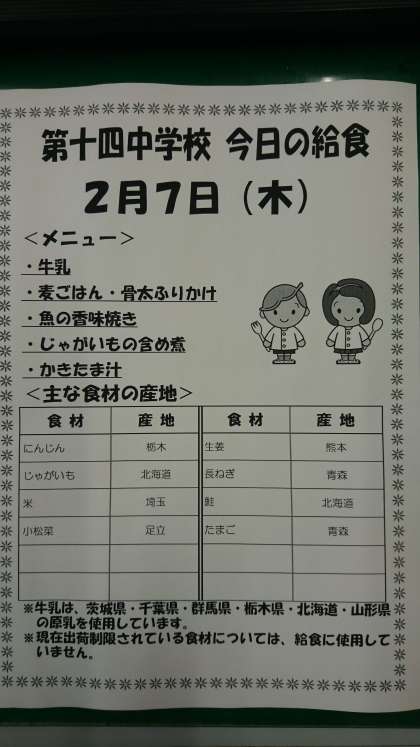 第十四中学校 今日の給食
2月7日（木）
＜メニュー＞
・牛乳
・麦ごはん・骨太ふりかけ
・魚の香味焼き
・じゃがいもの含め煮
・かきたま汁
＜主な食材の産地＞
食材 産地 食材 産地
にんじん 栃木 生姜 熊本
じゃがいも 北海道 長ねぎ 青森
米 埼玉 鮭 北海道
小松菜 足立 たまご 青森
※牛乳は、茨城県・千葉県・群馬県・栃木県・北海道・山形県
の原乳を使用しています。
※現在出荷制限されている食材については、給食に使用して
いません。